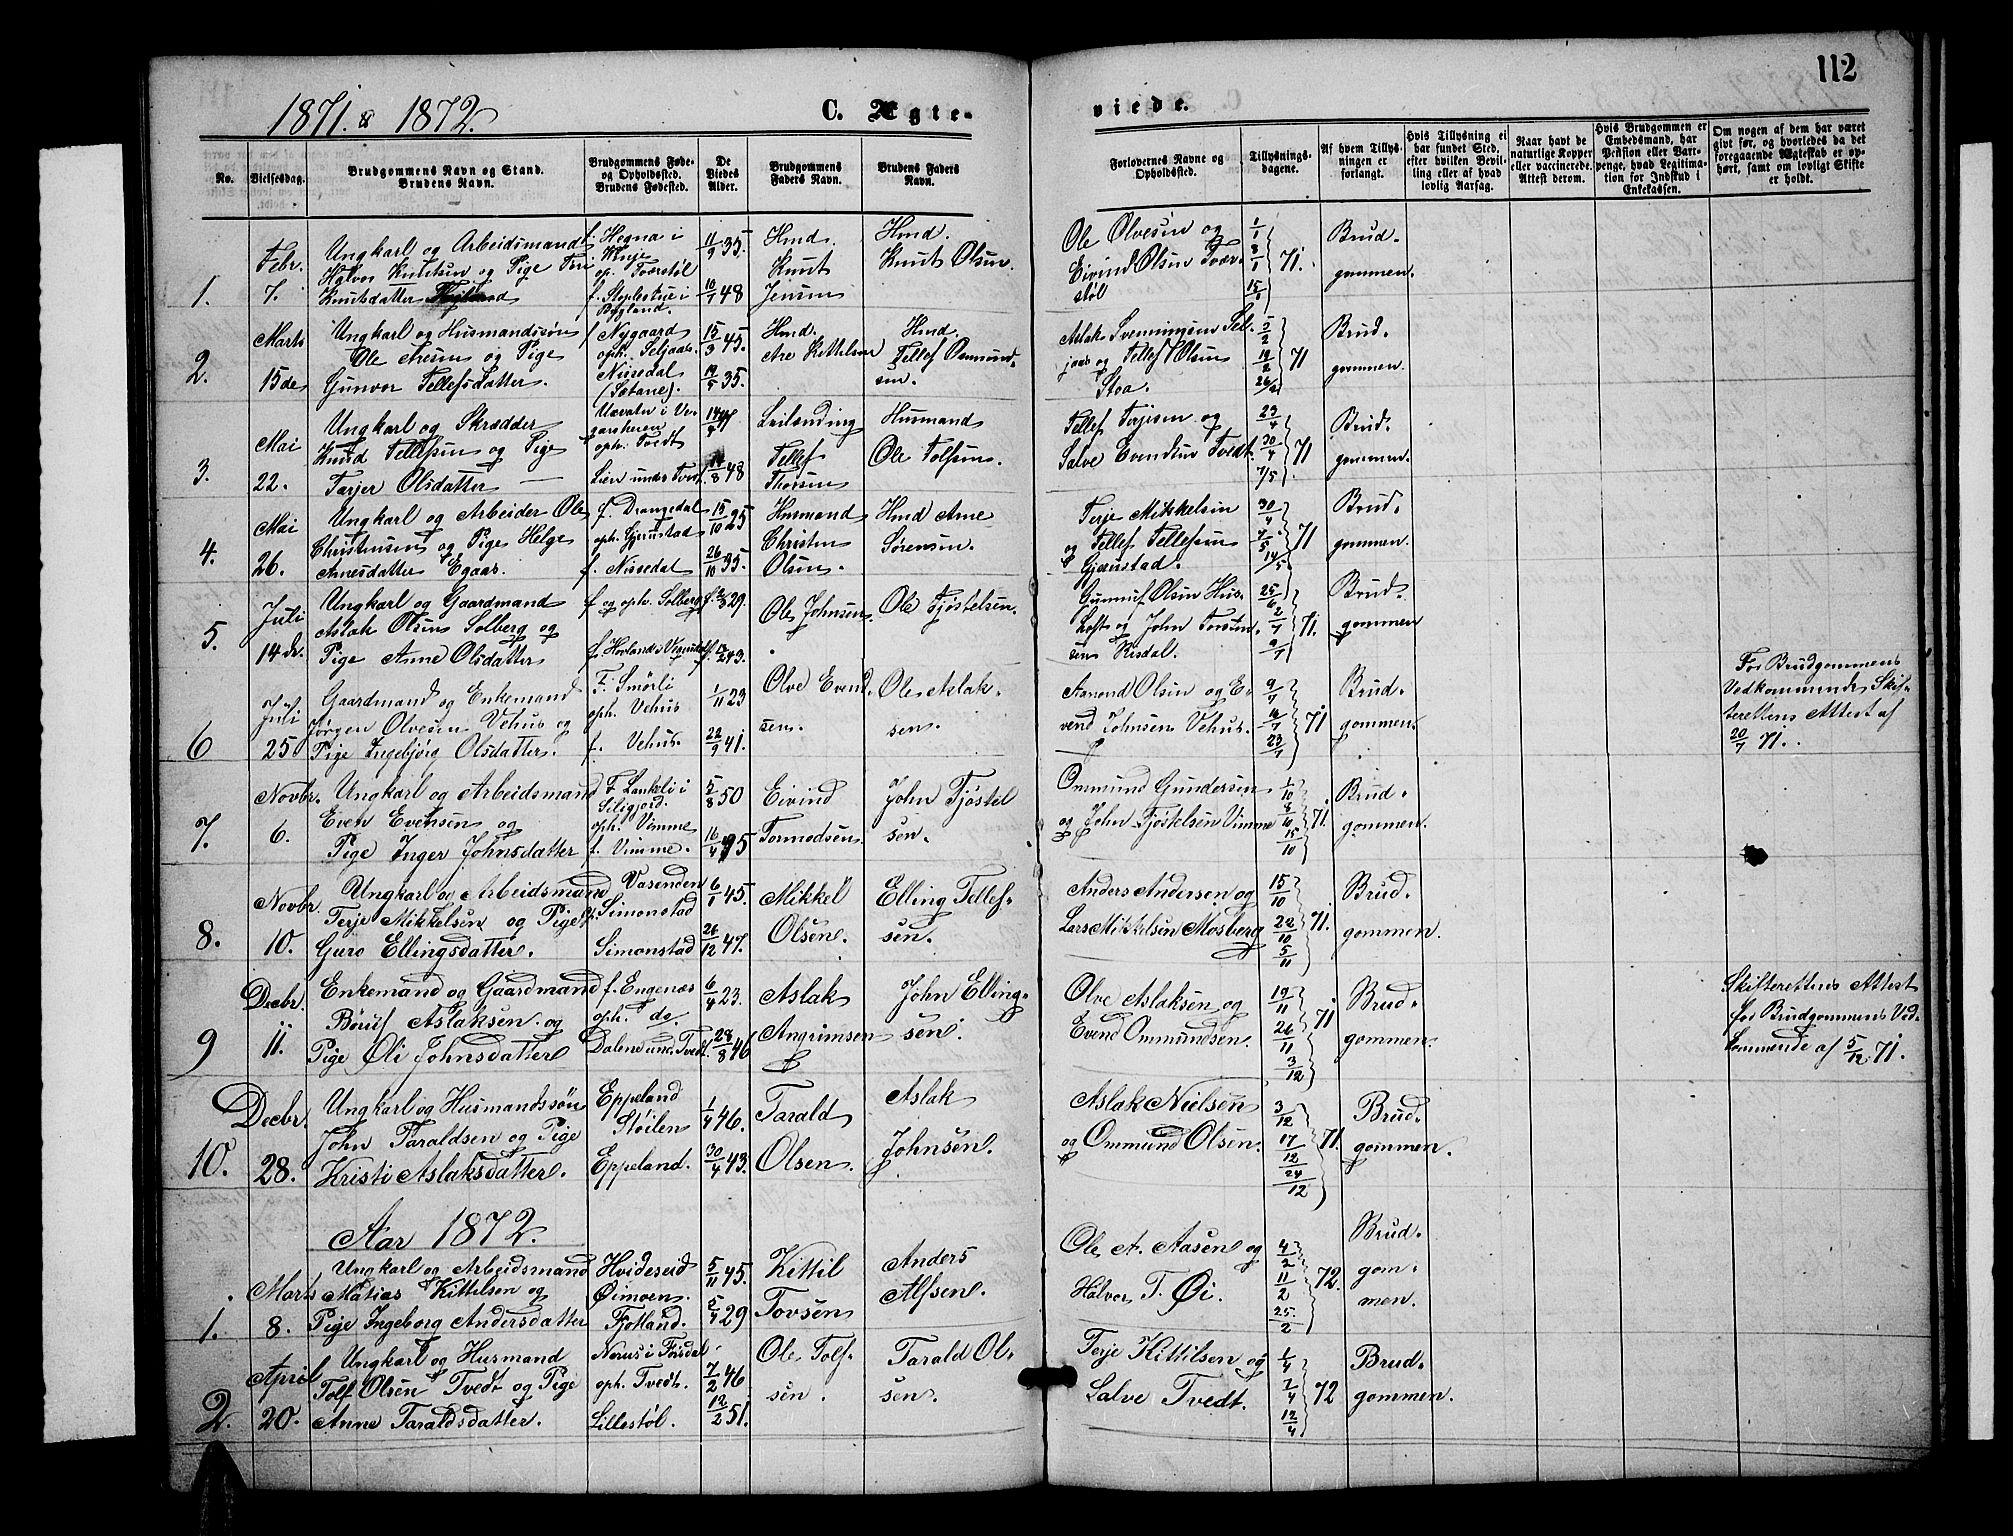 112
1871. & 1872.
C. Ægte-
viede.
No.
Vielsesdag.
Brudgommens Navn og Stand.
Brudens Navn.
Brudgommens Føde-
og Opholdssted.
Brudens Fødested.
De
Viedes
Alder.
Brudgommens
Faders Navn.
Brudens Faders
Navn.
Forlovernes Navne og
Opholdssted.
Tillysnings-
dagene.
Af hvem Tillys-
ningen er
forlangt.
Hvis Tillysning ei
har fundet Sted,
efter hvilken Bevil-
ling eller af hvad
lovlig Aarsag.
Naar havt de
naturlige Kopper
eller vaccinerede.
Attest derom.
Hvis Brudgommen er
Embedsmand, har
Pension eller Vart-
penge, hvad Legitima-
tion for Indskud i
Enkekassen.
Om nogen af dem har været
gift før, og hvorledes da det
foregaaende Ægteskab er op-
hørt, samt om lovligt Skifte
er holdt.
1.
Febr.
7.
Ungkarl og Arbeidsmand
Halvor Knutsen og Pige
Knutsdatter
f. Hegna i
op. Tværstøl
f. Stoplestue i
Bygland.
11/9 35.
10/7 48
Hmd.
Knut
Jensen
Hmd.
Knut Olsen.
Ole Olvesen og
Eivind Olsen Tvær-
støl
1/1
8/1
15/1
71.
Brud-
gommen.
2.
Marts
15de
Ungkarl og Husmandssøn
Ole Aresen og Pige
Gunvor Tellefsdatter.
f Nygaard
oph. Seljaas
Nissedal
(Sætane).
15/3 45.
19/5 35.
Hmd.
Are Kittelsen
Hmd
Tellef Osmund-
sen.
Aslak Svenningsen Sel-
jaas og Tellef Olsen
Stoa.
5/2
19/2
26/2
71
Brud-
gommen.
3.
Mai
22.
Ungkarl og Skrædder
Knud Tellefsen og Pige
Tarjer Olsdatter
Uævatn i Ve-
garsheien
oph. Tvedt
Lien under Tvedt
14/4 47
14/8 48
Leilænding
Tellef
Thorsen
Husmand
Ole Tolfsen.
Tellef Terjesen og
Salve Evendsen Tvedt.
23/4
30/4
7/5
71
Brud-
gommen.
4.
Mai
26.
Ungkarl og Arbeider Ole
Christensen og Pige Helge
Arnesdatter Egaas.
f. Drangedal
oph. Gjerustad
f. Nissedal
15/10 25
26/10 35.
Husmand
Christen
Olsen.
Hmd Arne
Sørensen.
Terje Mikkelsen
og Tellef Tellefsen
Gjerustad.
30/4
7/5
14/5
71
Brud-
gommen.
5.
Juli
14de.
Ungkarl og Gaardmand
Aslak Olsen Solberg og
Pige Anne Olsdatter
f og oph. Solberg
2/3 29.
Ole Johnsen.
Ole Tjøstelsen.
Gunnuf Olsen Hus-
loft og John Torsten-
sen Risdal.
25/6
2/7
9/7
71.
Brud-
gommen
6
Juli
25
Gaardmand og Enkemand
Jørgen Olvesen Vehus og
Pige Ingebjørg Olsdatter.
F. Smørli
oph. Vehus
f. Vehus.
1/11 23
22/9 41.
Olve Evend-
sen.
Ole Aslak-
sen.
Aanond Olsen og E-
vend Johnsen Vehus.
9/7
16/7
23/7
71
Brud-
gommen.
For Brudgommens
Vedkommende Skif-
terettens Attest af
20/7 71.
7.
Novbr.
6.
Ungkarl og Arbeidsmand
Even Evensen og
Pige Inger Johnsdatter
F. Lankeli i
Siligjord.
oph. Vimme
f. Vimme.
5/8 50
16/4 35
Eivind
Tormodsen.
John Tjøstel
sen.
Ommund Gundersen
og John Tjøstelsen Vimme
1/10
8/10
15/10
71.
Brud-
gommen.
8.
Novbr.
10.
Ungkarl og Arbeidsmand
Terje Mikkelsen og Pige
Guro Ellingsdatter.
Vasenden
Simonstad
Simonstad
6/1 45.
26/12 47.
Mikkel
Olsen.
Elling Tellef-
sen.
Anders Andersen og
Lars Mikkelsen Mosberg
15/10
22/10
5/11
71.
Brud-
gommen.
9
Decbr.
11.
Enkemand og Gaardmand
Børuf Aslaksen og
Pige Øli Johnsdatter
f. Engenæs
oph. do.
Dalen und. Tvedt.
6/4 23.
28/8 46
Aslak
Angrimsen
John Elling-
sen.
Olve Aslaksen og
Evend Ommundsen.
19/11
26/11
3/12
71
Brud-
gommen.
Skifterettens Attest
for Brudgommens Ved-
kommende af 5/12 71.
10.
Decbr.
28.
Ungkarl og Husmandssøn
John Taraldsen og Pige
Kristi Aslaksdatter.
Eppeland
Støilen
Eppeland.
1/4 46.
30/4 43.
Tarald
Olsen.
Aslak
Johnsen.
Aslak Nielsen
og Ommund Olsen.
3/12
17/12
24/12
71.
Brud-
gommen.
Aar 1872.
1.
Marts
8.
Ungkarl og Arbeidsmand
Matias Kittelsen og
Pige Ingeborg Andersdatter
Hvideseid
Øimoen.
Fjotland.
5/11 45.
5/4 29
Kittil
Tovsen
Anders
Alfsen.
Ole A. Aasen og
Halvor T. Øi.
4/2
11/2
25/2
72.
Brud-
gom-
men.
2.
April
20.
Ungkarl og Husmand
Tolf Olsen Tvedt og Pige
Anne Taraldsdatter.
Nerus i Firsdal
oph. Tvedt.
Lillestøl.
7/2 46
12/2 51.
Ole Tolf-
sen.
Tarald Ol-
sen.
Terje Kittilsen og
Salve Tvedt.
1/4
7/4
12/4
72
Brud-
gommen.